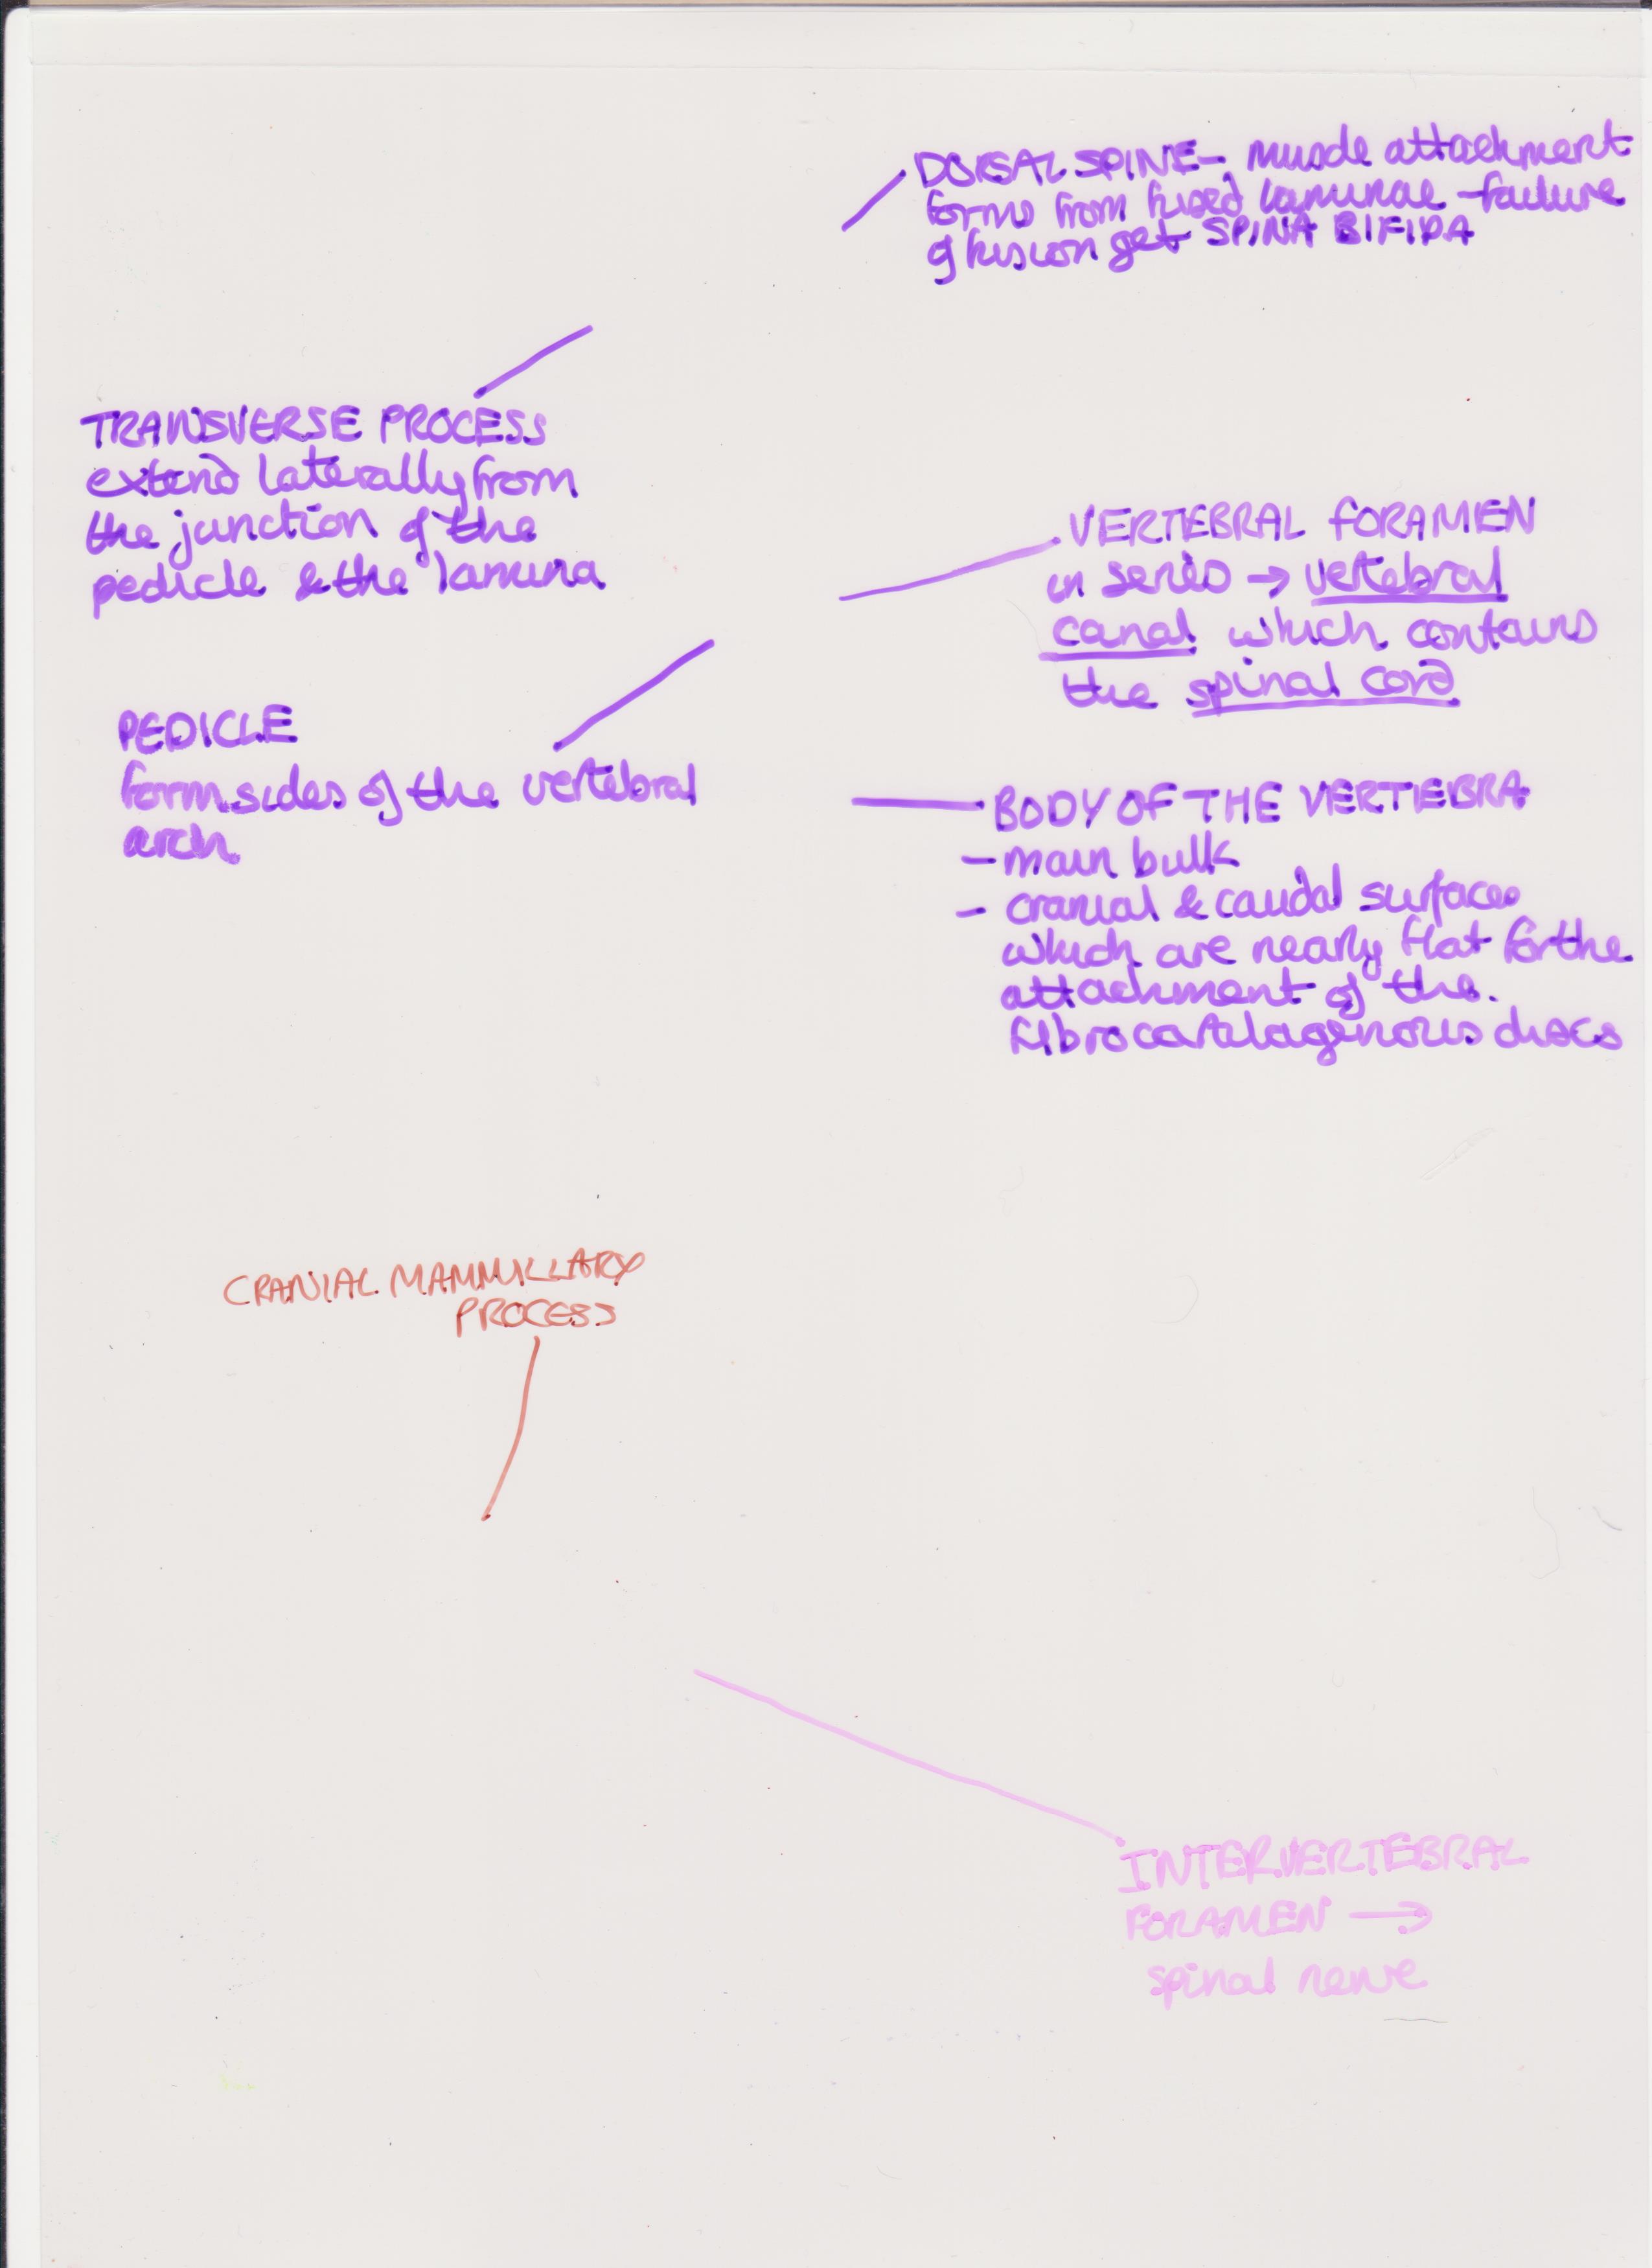 DORSAL SPINE - muscle attachment
forms from fused laminae - failure
of fusion get SPINA BIFIDA
TRANSVERSE PROCESS
extend laterally from
the junction of the
pedicle & the lamina
VERTEBRAL FORAMEN
in series → vertebral
canal which contains
the spinal cord
PEDICLE
form sides of the vertebral
arch
BODY OF THE VERTEBRA
- main bulk
- cranial & caudal surfaces
which are nearly flat for the
attachment of the
fibrocartilagenous discs
CRANIAL MAMMILLARY
PROCESS
INTERVERTEBRAL
FORAMEN →
spinal nerve